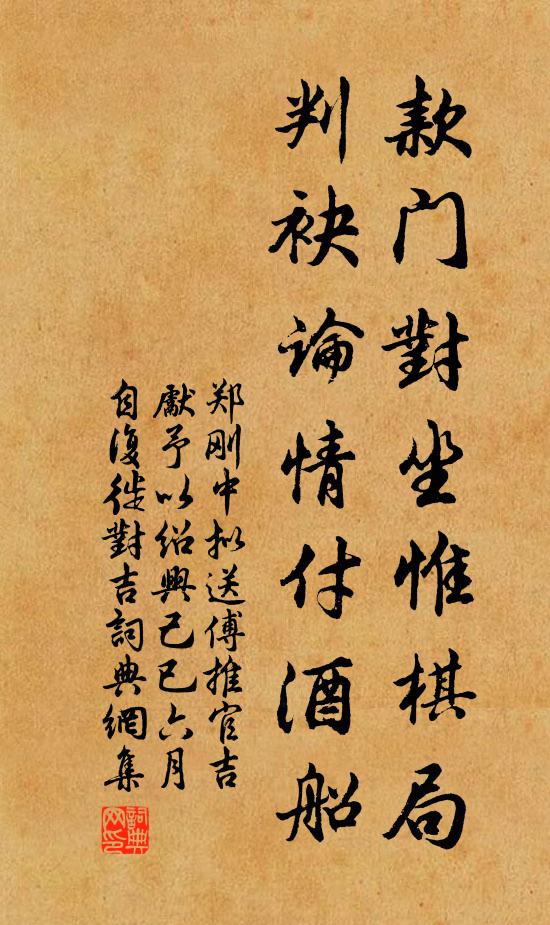 款门對坐惟棋局
判袂論情付酒船
郑刚中拟送傅推官吉
獻予以绍興己巳六月
自復徙對吉詞典網集
詞典网印